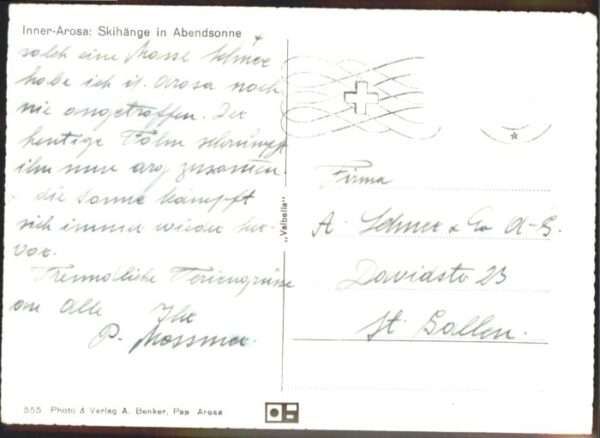 Inner-Arosa: Skihänge in Abendsonne
solch eine Masse Schnee
habe ich in Arosa noch
nie angetroffen. Der
heutige Föhn schrumpft
ihn nur arg zusammen
- die Sonne kämpft
sich immer wieder her-
vor.
Freundliche Feriengrüsse
an Alle Ihr
P.
"Valbella"
Firma
A. & Co A-G.
Davidstr 23
St. Gallen.
355 Photo & Verlag A. Benker, Pas Arosa